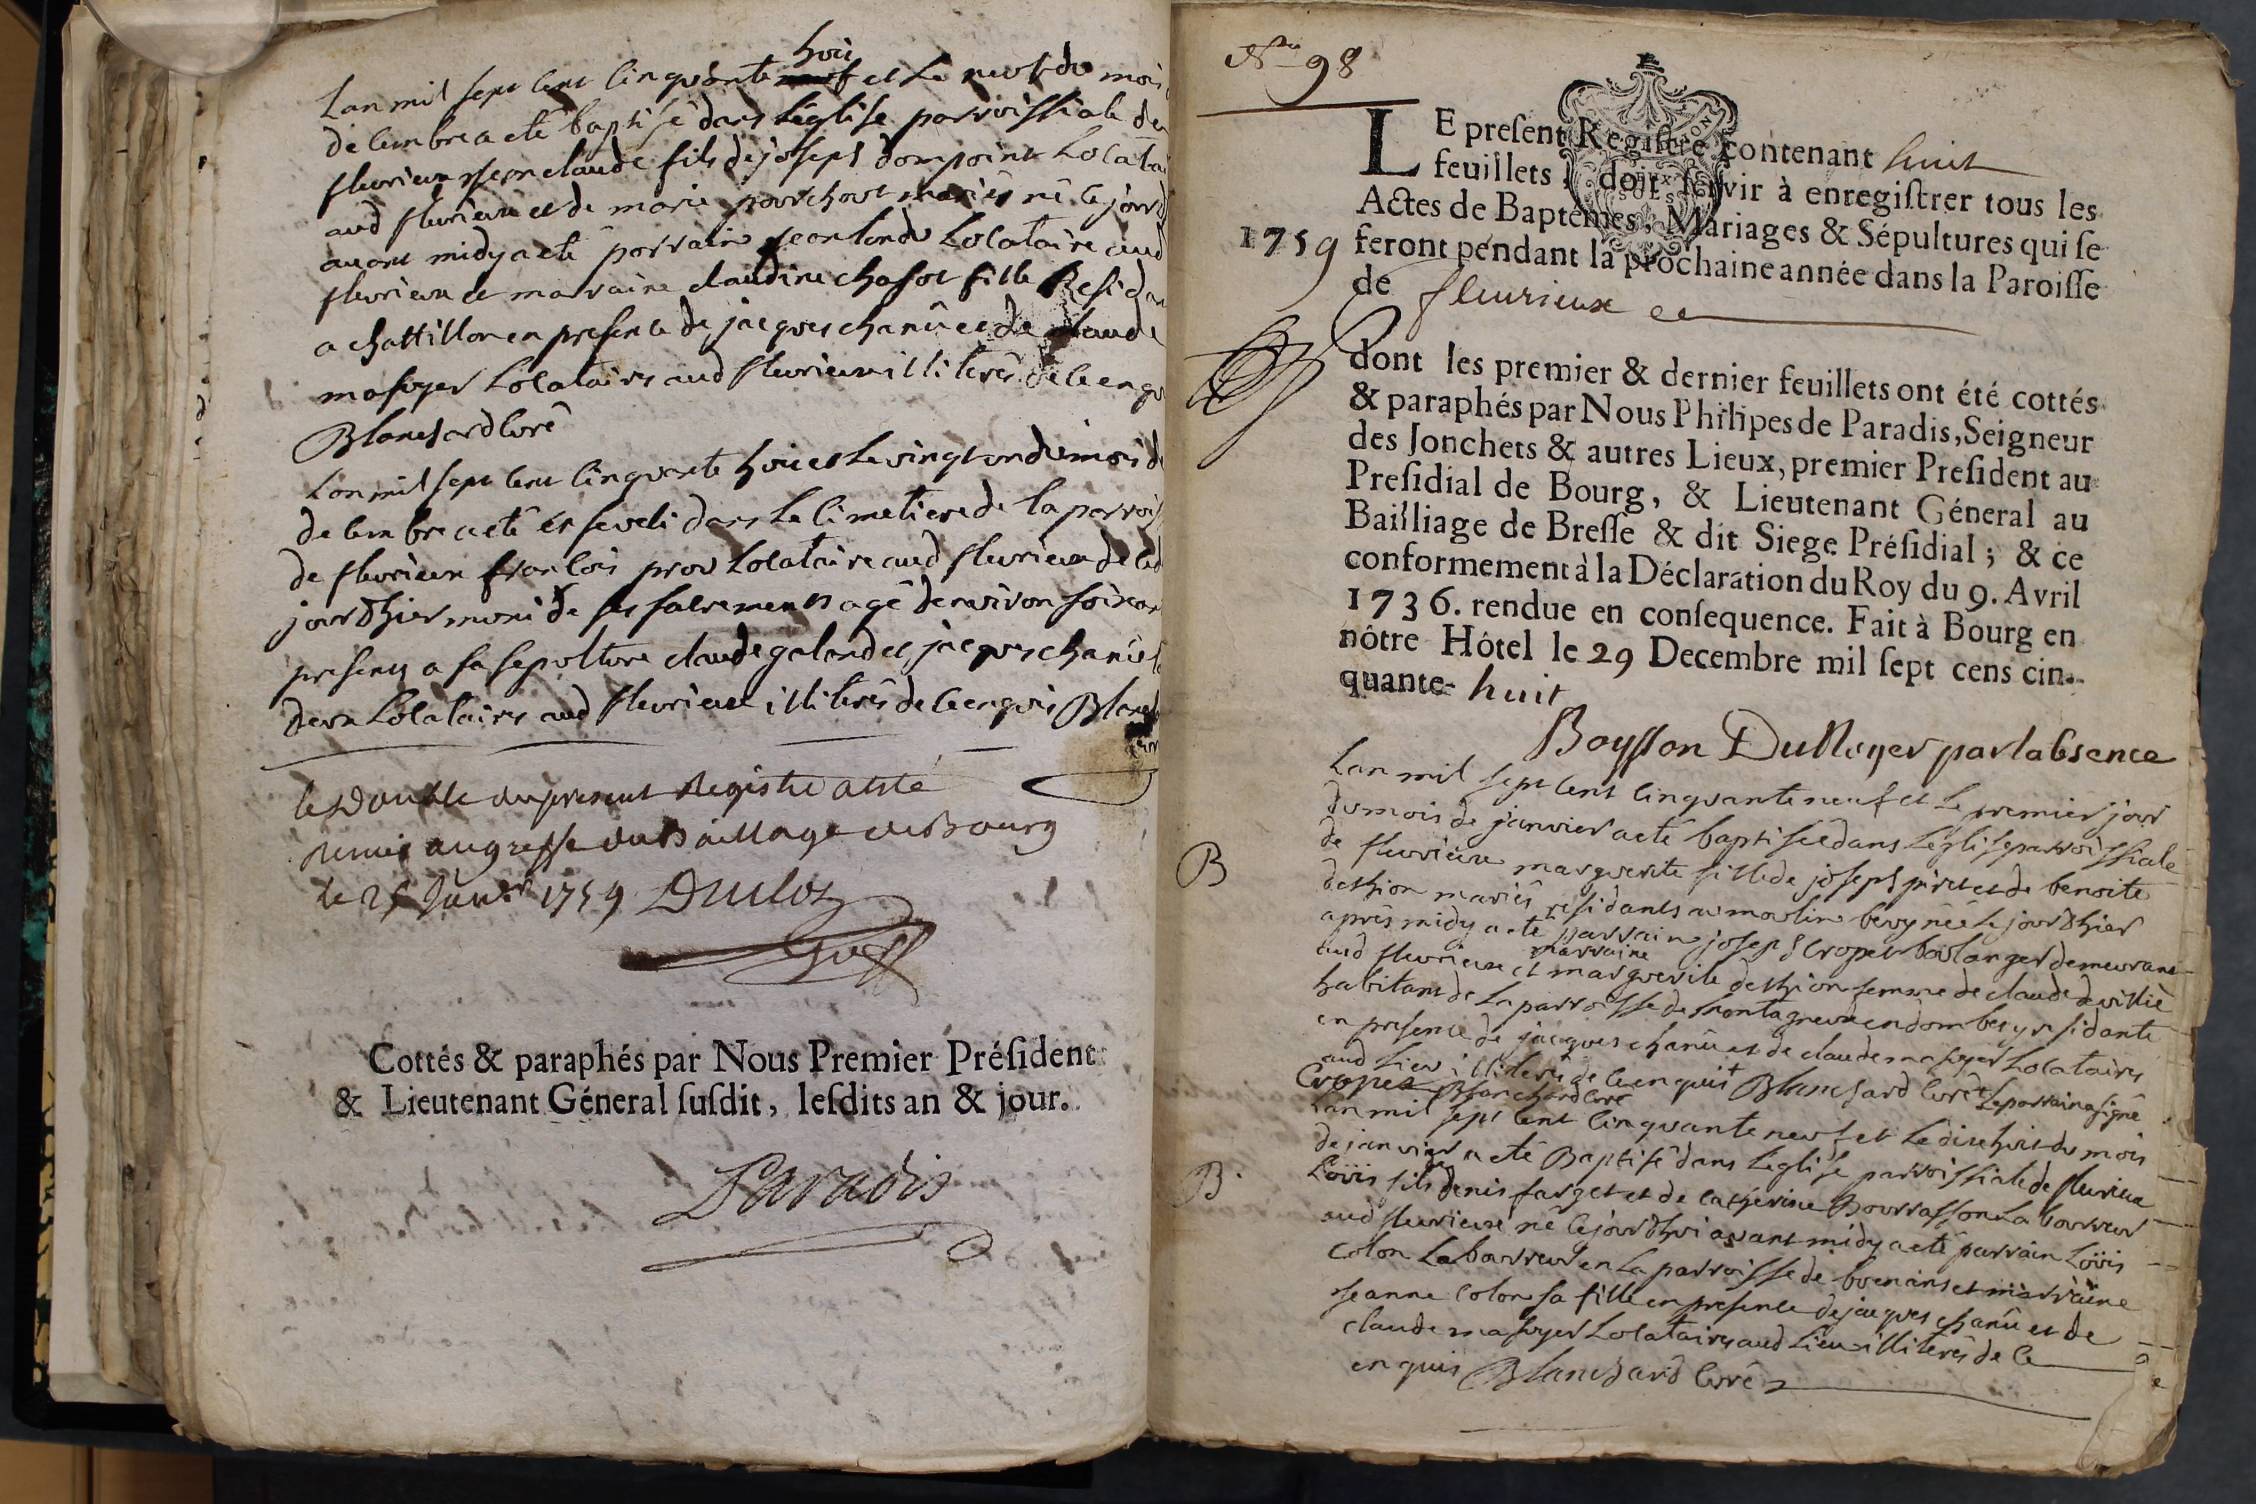 Lan mil sept cent cinquante neuf huit et le neuf du mois
decembre a eté baptisé dans l'église parroissiale de
fleurieux jean claude fils de joseph dompoint Locatai
aud fleurieux et de marie pourchout mariés né le jour
avant midy a eté parrain jean londe Locataire aud
fleurieux et marraine claudine chasot fille Residan
a chattillon en presence de jacques chanû et de claude
masuyer Locataires aud fleurieux illiterés de ce enqu
Blanchard curé
Lan mil sept cent cinquante huit et le vingt un du mois de
decembre a eté enseveli dans le cimetiere de la parrois
de fleurieux francois prov Locataire aud fleurieux decedé
jour d'hier muni de ses sacrements agé denviron soixan
presents a sa sepolture claude galand et jacques chanû
deux Locataires aud fleurieux illiterés de ce enquis Blanch
le Double du present Registre a esté
remis au greffe du Baillage de Bourg
le 25 Janvr 1759 Duclos
Greff
Cottés & paraphés par Nous Premier Préſident
& Lieutenant Géneral ſuſdit, leſdits an & jour.
Paradis
No 98
LE preſent Regiſtre contenant huit
feuillets, doit ſervir à enregiſtrer tous les
Actes de Baptêmes, Mariages & Sépultures qui ſe
1759 feront pendant la prochaine année dans la Paroiſſe
de fleurieux
dont les premier & dernier feuillets ont été cottés
& paraphés par Nous Philipes de Paradis, Seigneur
des Jonchets & autres Lieux, premier Preſident au
Preſidial de Bourg, & Lieutenant Géneral au
Bailliage de Breſſe & dit Siege Préſidial; & ce
conformement à la Déclaration du Roy du 9. Avril
1736. rendue en conſequence. Fait à Bourg en
nôtre Hôtel le 29 Decembre mil ſept cens cin-
quante- huit
Boysson Dunoyer par labsence
Lan mil sept cent cinquante neuf et le premier jour
du mois de janvier a eté baptisée dans l'église parroissiale
B de fleurieux marguerite fille de joseph piret et de benoite
dethion mariés residants au moulin bevy née le jour d'hier
après midy a eté parrain joseph Cropet boulanger demeurant
aud fleurieux et marraine marguerite dethion femme de claude devilliè
habitant de la parroisse de montagneux en dombes y residante
en presence de jacques chanû et de claude masuyer Locataires
aud Lieu illiterés de ce enquis + Blanchard curé + Le parrain a signé
Cropet Blanchard curé
Lan mil sept cent cinquante neuf et le dixhuit du mois
de janvier a eté Baptisé dans l'église parroissiale de fleurieux
B. Loüis fils de denis farget et de catherine Bourrasson Laboureur
aud fleurieux né le jour d'hui avant midy a eté parrain Loüis
colon Laboureur en la parroisse de buenans et marraine
jeanne colon sa fille en presence de jacques chanû et de
claude masuyer Locataires aud Lieu illiterés de ce
enquis Blanchard curé